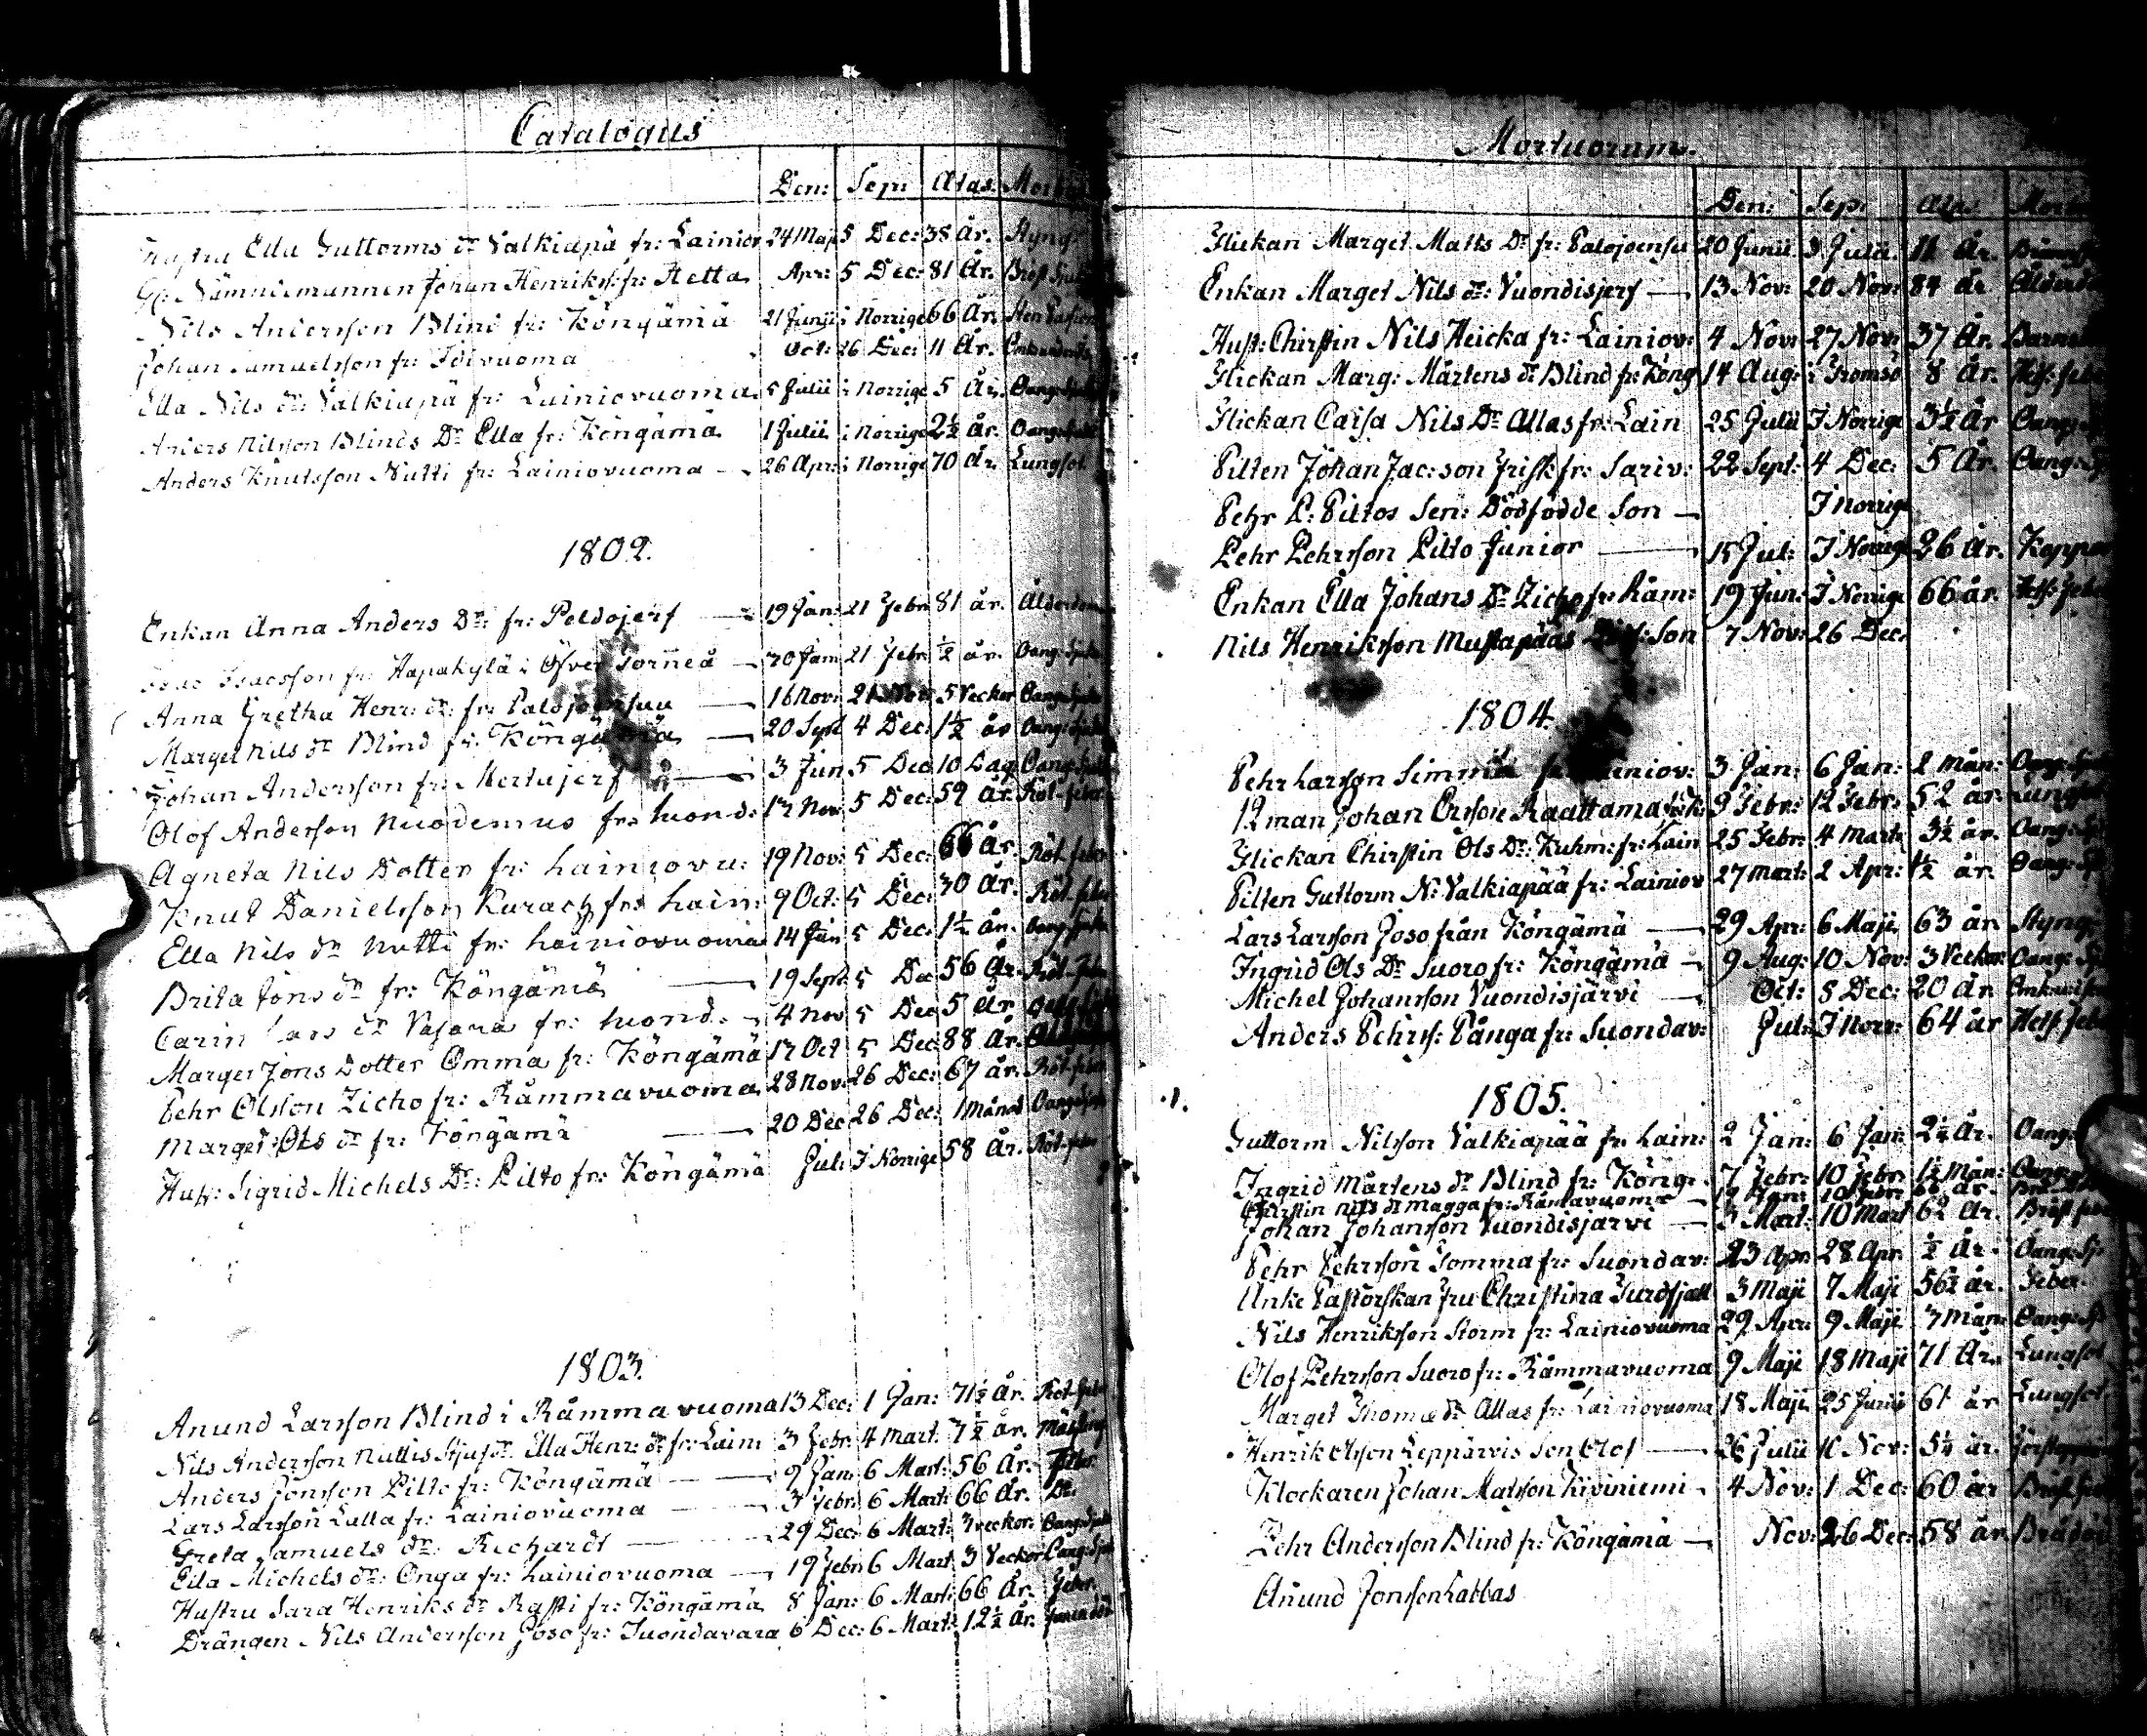 Catalogus
Den: Sep: Ætas: Mor
Hustru Ella Guttorms dr Valkiapä fr: Lainiov 24 Maji 5 Dec: 38 år. Styng
Gl: Nämndemannen Johan Henrikss: fr: Hetta Apr: 5 Dec: 81 År. Bröst
Nils Andersson Blind fr: Köngämä 21 Junii i Norrige 66 År. Sten Passion
Johan Samuelsson fr: Idivuoma Oct: 26 Dec: 11 År.
Ella Nils dr: Valkiapä fr: Lainiovuoma 5 Julii i Norrige 5 År. Oang: Sjuk
Anders Nilsson Blinds Dr Ella fr: Köngämä 1 Julii i Norrige 2½ år. Oang: Sjuk
Anders Knutsson Nutti fr: Lainiovuoma 26 Apr: i Norrige 70 År. Lungsot
1802.
Enkan Anna Anders Dr: fr: Peldojerf 19 Jan: 21 Febr 81 år. Ålderdom
Isacsson fr: Hapakylä i Öfver Torneå 30 Jan 21 Febr ½ år. Oang: Sjuk
Anna Gretha Henr: dr: fr: Palojoensuu 16 Nov: 21 Nov 5 Veckor Oang: Sjuk
Marget Nils dr Blind fr: Köngämä 20 Sept 4 Dec: 1½ år Oang: Sjuk
Johan Andersson fr: Mertajerf 3 Jun 5 Dec 10 Dag Oang: Sjuk
Olof Anderson Nuodemus fr: Suond: 17 Nov 5 Dec: 59 År. Röt-feber
Agneta Nils Dotter fr: Lainiovu: 19 Nov: 5 Dec: 66 År. Röt-feber
Knut Danielsson Kurach fr: Lain: 9 Oct: 5 Dec: 30 År. Röt-feber
Ella Nils dr Nutti fr: Lainiovuoma 14 Jan 5 Dec. 1½ år. Oang: Sjuk
Brita Jöns dr fr: Köngämä 19 Sept 5 Dec 56 År. Röt-feber
Carin Lars dr Vasara fr: Suond: 4 Nov 5 Dec 5 År. Oang: Sjuk
Marget Jöns Dotter Omma fr: Köngämä 17 Oct 5 Dec 88 År.
Pehr Olsson Zicho fr: Råmmavuoma 28 Nov: 26 Dec: 67 år. Röt-feber
Marget Ols dr fr: Köngämä 20 Dec 26 Dec: 1 Månad Oang: Sjuk
Hust: Sigrid Michels Dr: Pilto fr: Köngämä Jul: I Norrige 58 År. Röt-feber
1803.
Anund Larsson Blind i Råmmavuoma 13 Dec: 1 Jan: 71½ År. Röt-feber
Nils Andersson Nuttis Stjufdr. Ella Henr: dr fr: Laini 3 Febr: 4 Mart: 7½ år. Mässling
Anders Jonsson Pilto fr: Köngämä 9 Jan: 6 Mart: 56 År. Feber
Lars Larsson Lulla fr: Lainiovuoma 3 Febr: 6 Mart: 66 År. Do.
Greta Samuels dr: Richardt 29 Dec: 6 Mart: 3 veckor. Oang: Sjuk
Ella Michels dr: Onga fr: Lainiovuoma 19 Febr 6 Mart: 3 Veckor Oang: Sjuk
Hustru Sara Henriks dr Rasti fr: Köngämä 8 Jan: 6 Mart: 66 År. Feber.
Drängen Nils Andersson Joso fr: Suondavara 6 Dec: 6 Mart: 12½ År.
Mortuorum.
Den: Sep: Ætas: Mor
Flickan Marget Matts Dr fr: Palojoensu 20 Junii 3 Julii. 11 År.
Enkan Marget Nils dr: Vuondisjerf 13 Nov: 20 Nov: 84 år Ålderdom
Hust: Chirstin Nils Heicka fr: Lainiov: 4 Nov: 27 Nov: 37 År. Barns
Flickan Marg: Mårtens dr Blind fr: Köng 14 Aug: i Tromsö 8 År. Hetf: feb
Flickan Caisa Nils Dr Allas fr: Lain 25 Julii I Norrige 3½ år Oang: Sj
Pilten Johan Jac: son Frisk fr: Sariv: 22 Sept: 4 Dec: 5 År. Oang: Sj
Pehr P: Piltos Sen: Dödfödde Son I Norrige
Pehr Pehrsson Pilto Junior 15 Jul: I Norrige 26 år. Koppor
Enkan Ella Johans Dr Zicho fr: Råm: 19 Jun: I Norrige 66 år. Hetf: Feb
Nils Henriksson Mustapääs Son 7 Nov: 26 Dec.
1804.
Pehr Larsson Simma fr Lainiov: 3 Jan: 6 Jan: 2 Mån: Oang: Sju
12 man Johan Ersson Raattama 9 Febr: 12 Febr: 52 år: Lungsot
Flickan Chirstin Ols Dr: Kuhm: fr: Lain 25 Febr: 4 Mart: 3½ år. Oang: Sj
Pilten Guttorm N: Valkiapää fr: Lainiov 27 Mart: 2 Apr: 1½ år. Oang: Sju
Lars Larsson Joso från Köngämä 29 Apr: 6 Maji 63 år. Styng
Ingrid Ols Dr Suoro fr: Köngämä 9 Aug: 10 Nov: 3 Veckor Oang: Sj
Michel Johansson Vuondisjärvi Oct: 8 Dec: 20 År.
Anders Pehrs: Pånga fr: Suondav: Jul: I Norr: 64 år Hetf: Feb
1805.
Guttorm Nilsson Valkiapää fr: Lain: 2 Jan: 6 Jan: 2¼ År. Oang:
Ingrid Mårtens dr Blind fr: Köng: 7 Febr: 10 Febr: 1½ Mån: Oang:
Chirstin Nils dr Magga fr: Råmavuoma 19 Jan: 10 Febr:
Johan Johansson Vuondisjärvi 3 Mart: 10 Mart 62 År. Bröst feb
Pehr Pehrsson Somma fr: Suondav: 23 Apr: 28 Apr. ½ År. Oang: Sj
Enke Pastorskan Fru Christina Turdfjæll 3 Maji 7 Maji 56½ år. Feber.
Nils Henriksson Storm fr: Lainiovuoma 29 Apr: 9 Maji 7 Mån: Oang: Sj
Olof Pehrsson Suoro fr: Råmmavuoma 9 Maji 18 Maji 71 År. Lungsot
Marget Thomæ dr Allas fr: Lainiovuoma 18 Maji 25 Junii 61 år Lungsot
Henrik Olsson Leppäjärvis Son Olof 26 Julii 10 Nov: 5¼ år.
Klockaren Johan Matsson Kiviniemi 4 Nov: 1 Dec: 60 år Bröst
Pehr Andersson Blind fr: Köngämä Nov: 26 Dec: 58 år. Bråddö
Anund Jonsson Labbas